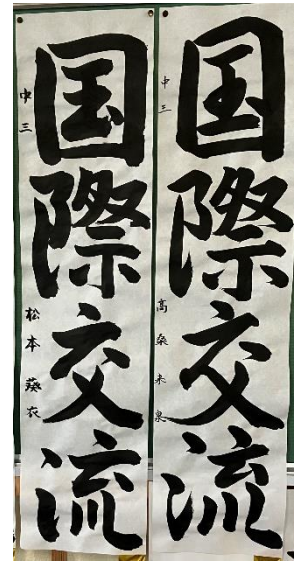 国際交流
中三 高桑未泉
国際交流
中三 松本葵衣